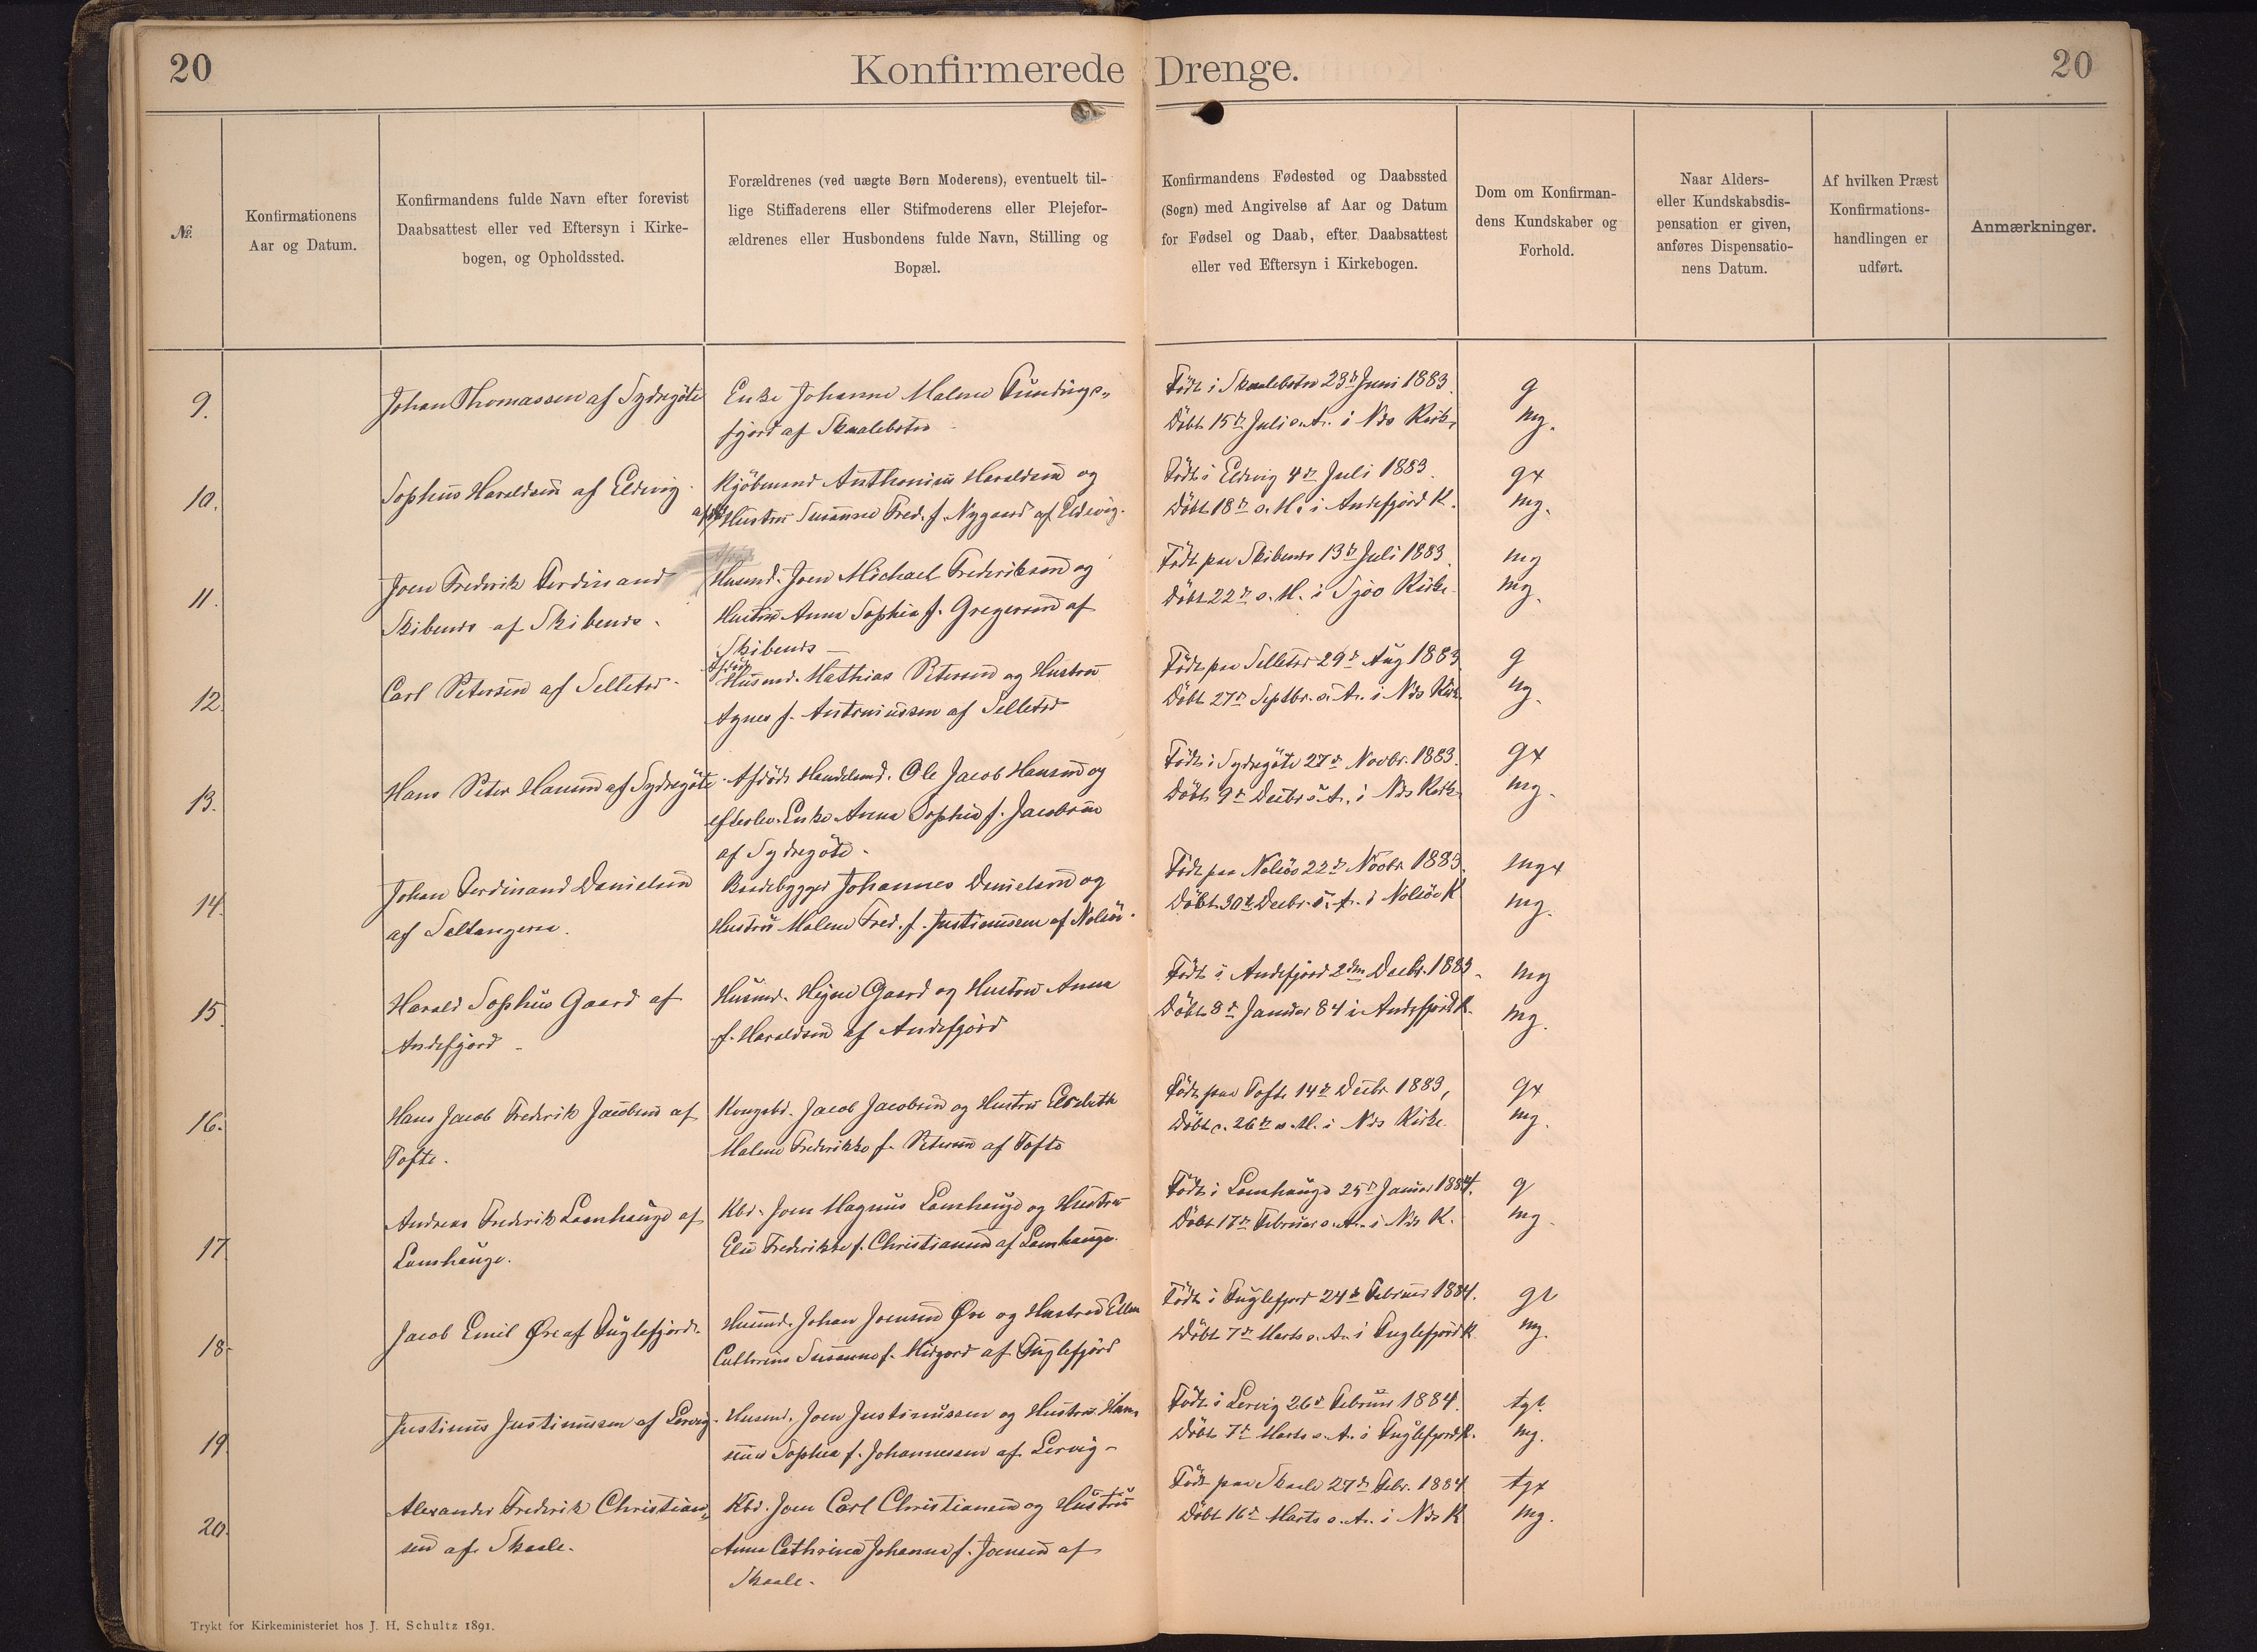 20
Konfirmerede Drenge.
20
№.
Konfirmationens
Aar og Datum.
Konfirmandens fulde Navn efter forevist
Daabsattest eller ved Eftersyn i Kirke-
bogen, og Opholdssted.
Forældrenes (ved uægte Børn Moderens), eventuelt til-
lige Stiffaderens eller Stifmoderens eller Plejefor-
ældrenes eller Husbondens fulde Navn, Stilling og
Bopæl.
Konfirmandens Fødested og Daabssted
(Sogn) med Angivelse af Aar og Datum
for Fødsel og Daab, efter Daabsattest
eller ved Eftersyn i Kirkebogen.
Dom om Konfirman-
dens Kundskaber og
Forhold.
Naar Alders-
eller Kundskabsdis-
pensation er given,
anføres Dispensatio-
nens Datum.
Af hvilken Præst
Konfirmations-
handlingen er
udført.
Anmærkninger.
9.
Johan Thomassen af Sydregöte
Enke Johanne Malene Funding-
fjord af Skaalebotn
Födt i Skaalebotn 23d Juni 1883
Döbt 15d Juli s. A. i Nds Kirke
g
mg.
10.
Sophus Haraldsen af Eldevig.
Kjöbmand Anthonius Haraldsen og
Hustru Susanne Fred. f. Nygaard af Eldevig.
Födt i Eldevig 4d Juli 1883.
Döbt 18d s. M. i Andefjord K.
gx
mg.
11.
Joen Frederik Ferdinand
Skibenæs af Skibenæs.
Husmd. Joen Michael Frederiksen og
Hustru Anna Sophia f. Gregersen af
Skibenæs
Födt paa Skibenæs 13d Juli 1883.
Döbt 22d s. M. i Sjöv Kirke
mg
mg.
12.
Carl Petersen af Selletræ
Afdöde
Husmd. Mathias Petersen og Hustru
Agnes f. Antoniussen af Selletræ
Födt paa Selletræ 29d Aug 1883
Döbt 27d Septbr. s. A. i Nds Kirke
g
ug.
13.
Hans Peter Hansen af Sydregöte
Afdöde Handelsmd. Ole Jacob Hansen og
efterlev. Enke Anna Sophia f. Jacobsen
af Sydregöte.
Födt i Sydregöte 27d Novbr. 1883.
Döbt 9d Decbr s. A. i Nds Kirke
gx
mg.
14.
Johan Ferdinand Danielsen
af Saltangerne.
Baadebygger Johannes Danielsen og
Hustru Malene Fred. f. Justinussen af Nolsö.
Födt paa Nolsö 22d Novbr 1883.
Döbt 30d Decbr. s. A. i Nolsö K
mgx
mg.
15.
Harald Sophus Gaard af
Andefjord
Husmd. Hejne Gaard og Hustru Anna
f. Haraldsen af Andefjord
Födt i Andefjord 2den Decbr. 1883.
Döbt 8d Januar 84 i Andefjord K.
mg
mg.
16.
Hans Jacob Frederik Jacobsen af
Tofte.
Kongsbd. Jacob Jacobsen og Hustru Elsebeth
Malene Frederikke f. Petersen af Tofte
Födt paa Tofte 14d Decbr. 1883,
Döbt d. 26d s. M. i Nds Kirke.
gx
mg.
17
Andreas Frederik Lamhauge af
Lamhauge.
Kbd. Joen Magnus Lamhauge og Hustru
Else Frederikke f. Christiansen af Lamhauge.
Födt i Lamhauge 25d Januar 1884.
Döbt 17d Februar s. A. i Nds K.
g
mg.
18.
Jacob Emil Øre af Fuglefjord.
Husmd. Johan Joensen Øre og Hustru Ellen
Cathrine Susanne f. Midgord af Fuglefjörd
Födt i Fuglefjord 24d Februar 1884.
Döbt 7d Marts s. A. i Fuglefjord K.
gt
mg.
19.
Justinus Justinussen af Lervig.
Husmd. Joen Justinussen og Hustru Han
sine Sophia f. Johannessen af Lervig
Födt i Lervig 26d Februar 1884.
Döbt 7d Marts s. A. i Fuglefjord K.
tgt.
mg.
20.
Alexander Frederik Christian-
sen af Skaale.
Kbd. Joen Carl Christiansen og Hustru
Anna Cathrina Johanna f. Joensen af
Skaale.
Födt paa Skaale 27d Febr. 1884
Döbt 16d Marts s. A. i Nds K
tgx
mg.
Trykt for Kirkeministeriet hos J. H. Schultz 1891.